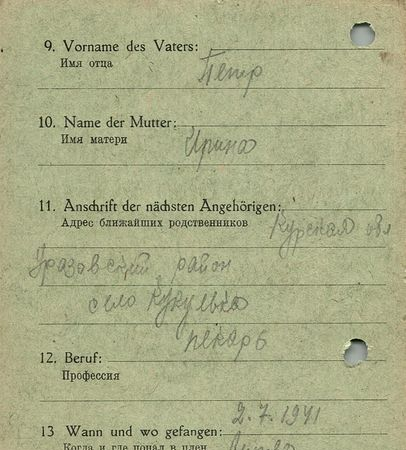 9. Vorname des Vaters:
Имя отца
Петр
10. Name der Mutter:
Имя матери
Ирина
11. Anschrift der nächsten Angehörigen:
Адрес ближайших родственников
Курская обл
Уразовский район
село Кукулька
пекарь
12. Beruf:
Профессия
2.7.1941
13 Wann und wo gefangen:
Когда и где попал в плен